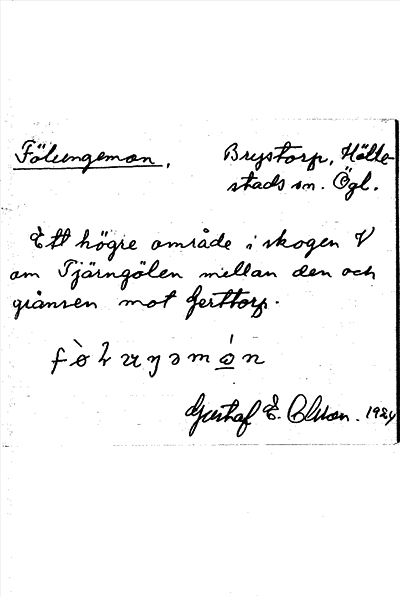 Fölungemon, Brystorp, Hälle-
stads sn. Ögl.
Ett högre område i skogen V
om Tjärngölen mellan den och
gränsen mot Gerttorp.
Gustaf E. Olsson. 1924